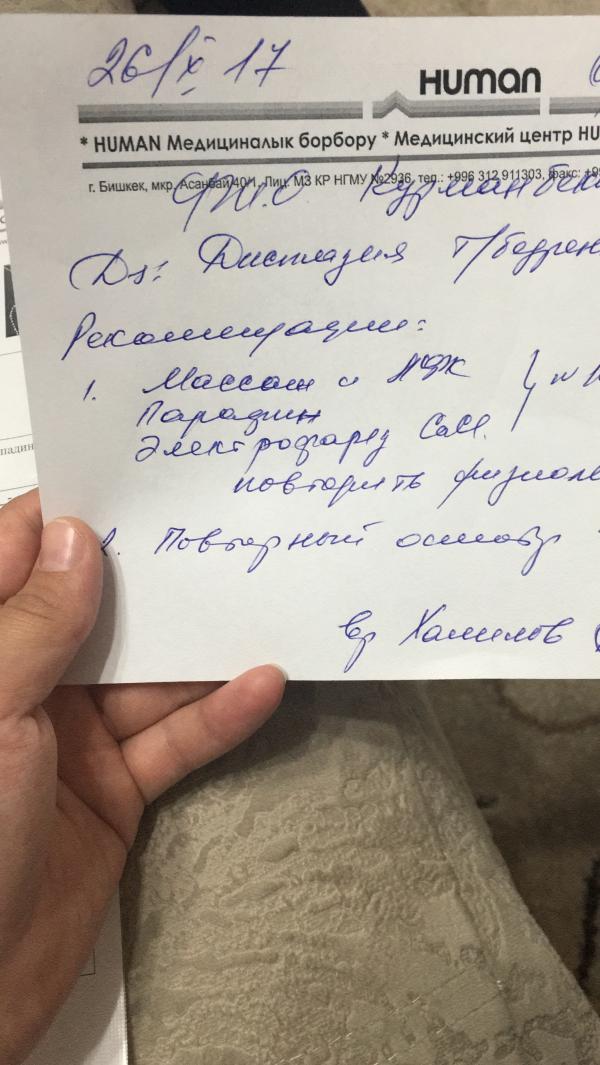 26/X 17
HUMAN
* HUMAN Медициналык борбору * Медицинский центр HU
г. Бишкек, мкр. Асанбай 40/1, Лиц. МЗ КР НГМУ №2936, тел.: +996 312 911303, факс: +99
Ф.И.О Курманбек
Дз: Дисплазия т/бедрен
Рекоменрации:
1. Массаж и ЛФК
Парафин
Электрофарез CaCl.
повторить физиоле
2. Повторный осмотр
вр Халилов
падин